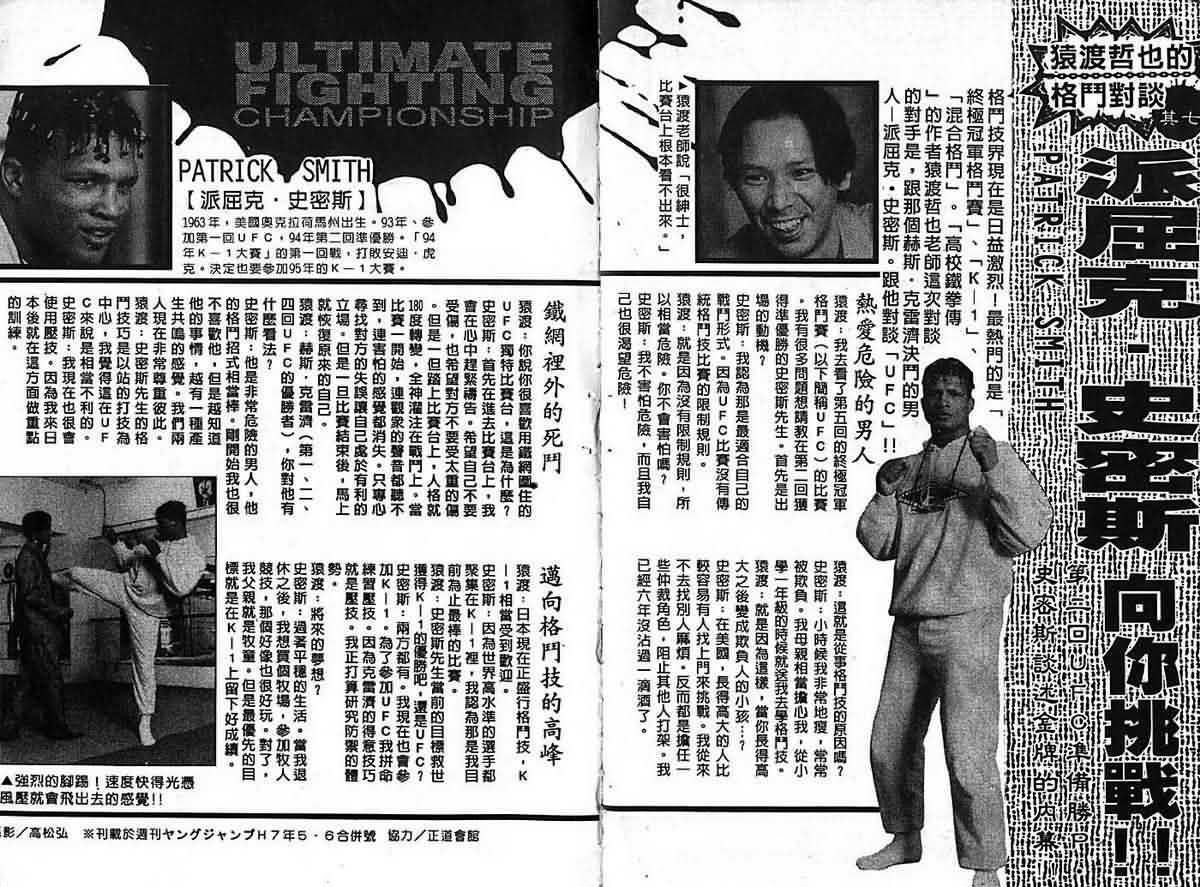 猿渡哲也的
格鬥對談
其七
派屈克·史密斯 向你挑戰!!
PATRICK SMITH
第二回UFC準優勝P
史密斯談述金牌的內幕!
格鬥技界現在是日益激烈!最熱門的是「
終極冠軍格鬥賽」、「K-1」、
「混合格鬥」。「高校鐵拳傳
」的作者猿渡哲也老師這次對談
的對手是,跟那個赫斯·克雷濟決鬥的男
人—派屈克·史密斯。跟他對談「UFC」!!
▶猿渡老師說「很紳士,
比賽台上根本看不出來。」
熱愛危險的男人
猿渡:我去看了第五回的終極冠軍
格鬥賽(以下簡稱UFC)的比賽
。我有很多問題想請教在第二回獲
得準優勝的史密斯先生。首先是出
場的動機?
史密斯:我認為那是最適合自己的
戰鬥形式。因為UFC比賽沒有傳
統格鬥技比賽的限制規則。
猿渡:就是因為沒有限制規則,所
以相當危險。你不會害怕嗎?
史密斯:我不害怕危險,而且我自
己也很渴望危險!
猿渡:這就是從事格鬥技的原因嗎?
史密斯:小時候我非常地瘦,常常
被欺負。我母親相當擔心我,從小
學一年級的時候就送我去學格鬥技。
猿渡:就是因為這樣,當你長得高
大之後變成欺負人的小孩…?
史密斯:在美國,長得高大的人比
較容易有人找上門來挑戰。我從來
不去找別人麻煩。反而都是擔任一
些仲裁角色,阻止其他人打架。我
已經六年沒沾過一滴酒了。
ULTIMATE
FIGHTING
CHAMPIONSHIP
PATRICK SMITH
【派屈克·史密斯】
1963年,美國奧克拉荷馬州出生。93年、參
加第一回UFC,94年第二回準優勝。「94
年K-1大賽」的第一回戰,打敗安迪·虎
克。決定也要參加95年的K-1大賽。
鐵網裡外的死鬥
猿渡:你說你很喜歡用鐵網圍住的
UFC獨特比賽台,這是為什麼?
史密斯:首先在進去比賽台上,我
會在心中趕緊禱告。希望自己不要
受傷,也希望對方不要受太重的傷
。但是一但踏上比賽台上,人格就
180度轉變,全神灌注在戰鬥上。當
比賽一開始,連觀眾的聲音都聽不
到,連害怕的感覺都消失。只專心
尋找對方的失誤讓自己處於有利的
立場。但是一旦比賽結束後,馬上
就恢復原來的自己。
猿渡:赫斯·克雷濟(第一、二、
四回UFC的優勝者),你對他有
什麼看法?
史密斯:他是非常危險的男人,他
的格鬥招式相當棒。剛開始我也很
不喜歡他,但是越知道
他的事情,越有一種產
生共鳴的感覺。我們兩
人現在非常尊重彼此。
猿渡:史密斯先生的格
鬥技巧是以站的打技為
中心,我覺得這在UF
C來說是相當不利的。
史密斯:我現在也很會
使用壓技。因為我來日
本後就在這方面做重點
的訓練。
邁向格鬥技的高峰
猿渡:日本現在正盛行格鬥技,K
-1相當受到歡迎。
史密斯:因為世界高水準的選手都
聚集在K-1裡,我認為那是我目
前為止最棒的比賽。
猿渡:史密斯先生當前的目標救世
獲得K-1的優勝吧,還是UFC?
史密斯:兩方都有。我現在也會參
加K-1。為了參加UFC我拼命
練習壓技。因為克雷濟的得意技巧
就是壓技。我正打算研究防禦的體
勢。
猿渡:將來的夢想?
史密斯:過著平穩的生活。當我退
休之後,我想買個牧場,參加牧人
競技,那個好像也很好玩。對了,
我父親就是牧童。但是最優先的目
標就是在K-1上留下好成績。
▲強烈的腳踢!速度快得光憑
風壓就會飛出去的感覺!!
影/高松弘 ※刊載於週刊ヤングジャンプH7年5·6合併號 協力/正道會館